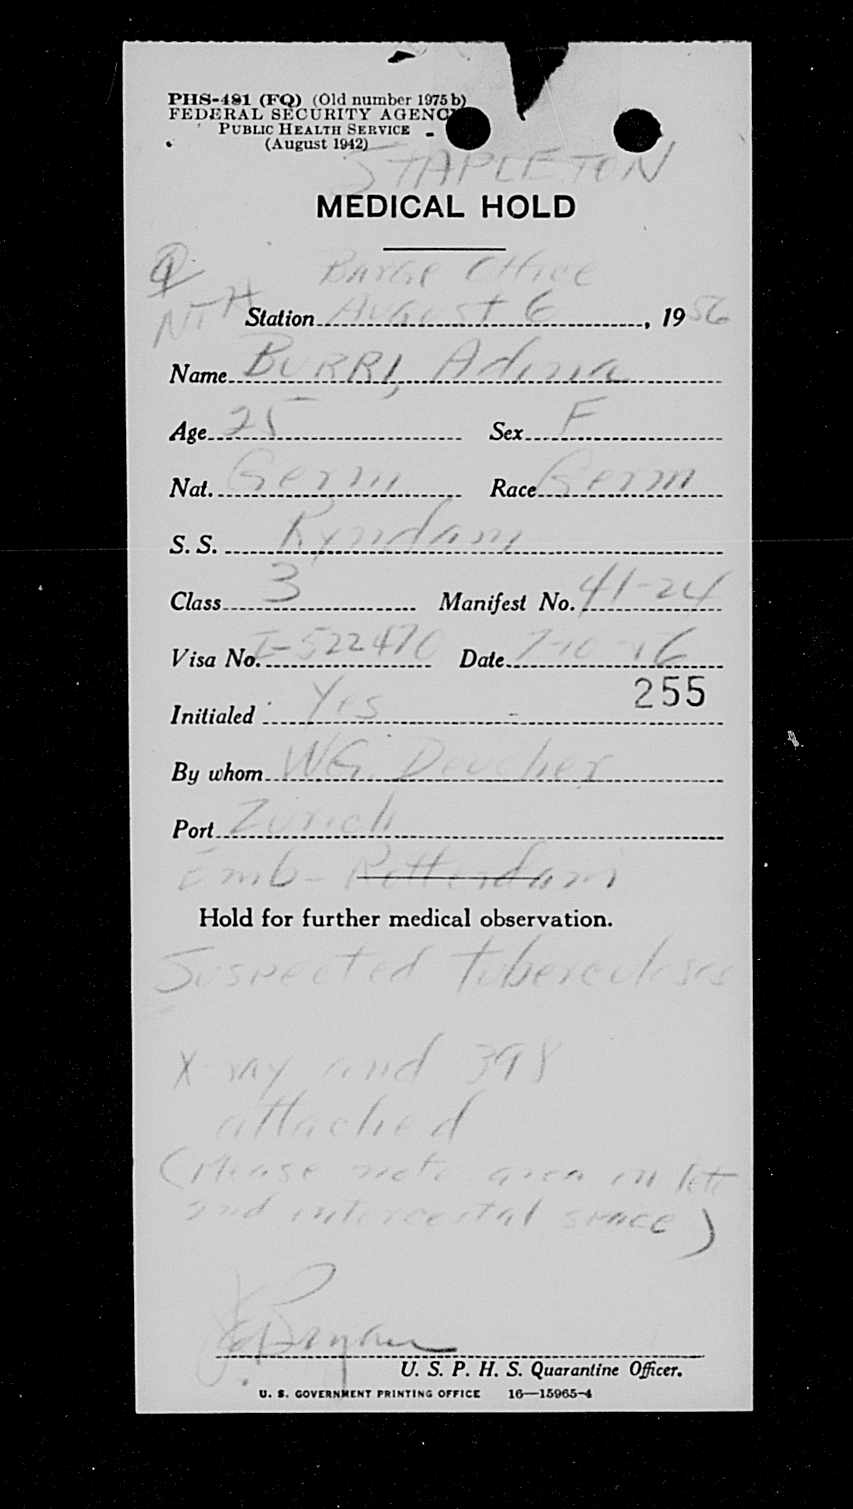 PHS-491 (FQ) (Old number 1975b)
FEDERAL SECURITY AGENCY
PUBLIC HEALTH SERVICE
(August 1942)
STAPLETON
MEDICAL HOLD
Barge Office
Station August 6, 1956
Name BURRI, Adina
Age 25 Sex F
Nat. Germ Race Germ
S. S. Ryndam
Class 3 Manifest No. 41-24
Visa No. I-522470 Date 7-10-56
255
Initialed Yes
By whom WG. Deucher
Port Zurich
Emb- Rotterdam
Hold for further medical observation.
Suspected tuberculosis
X-ray and 398
attached
(Please note area in left
2nd intercostal space)
U. S. P. H. S. Quarantine Officer.
U. S. GOVERNMENT PRINTING OFFICE 16—15965-4